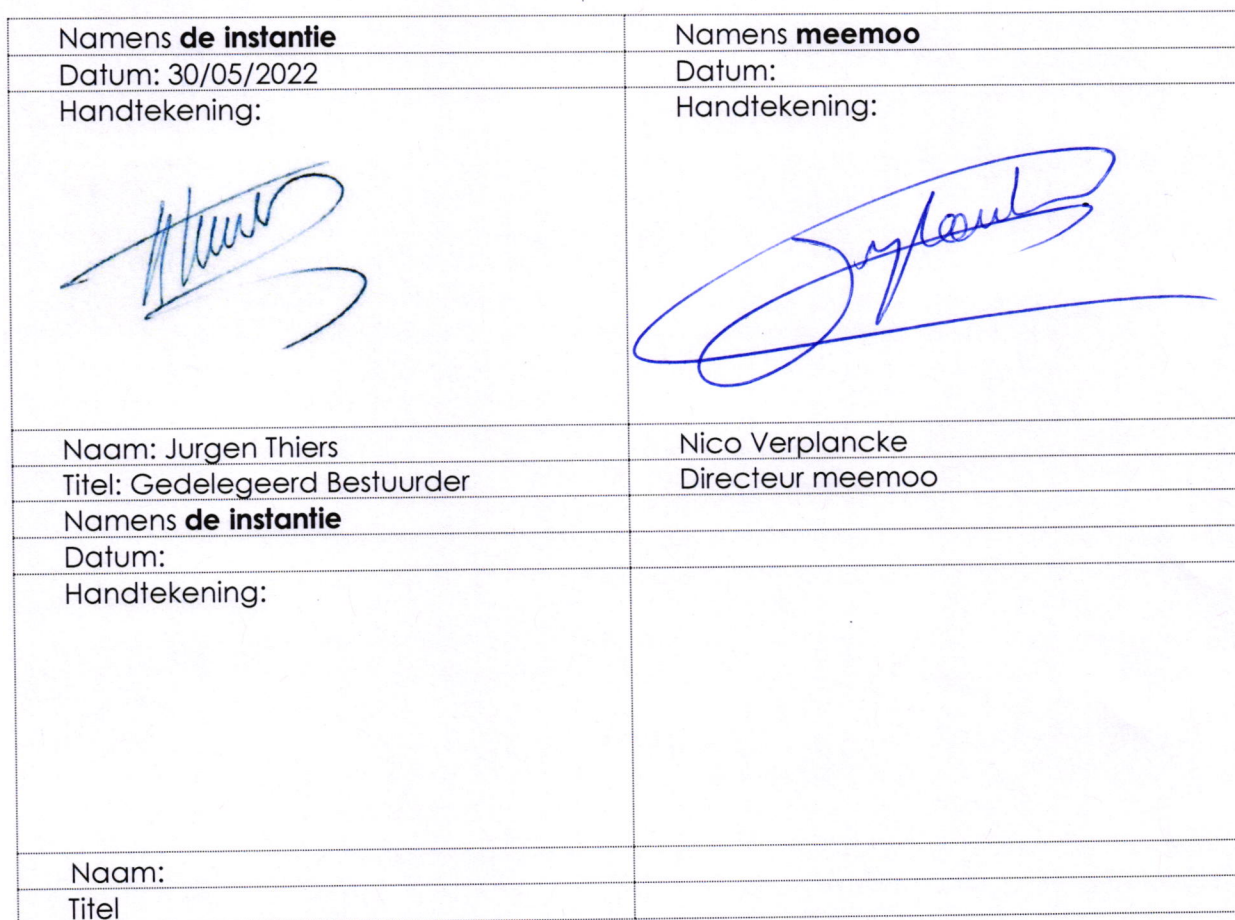 Namens de instantie
Namens meemoo
Datum: 30/05/2022
Datum:
Handtekening:
Handtekening:
Naam: Jurgen Thiers
Nico Verplancke
Titel: Gedelegeerd Bestuurder
Directeur meemoo
Namens de instantie
Datum:
Handtekening:
Naam:
Titel